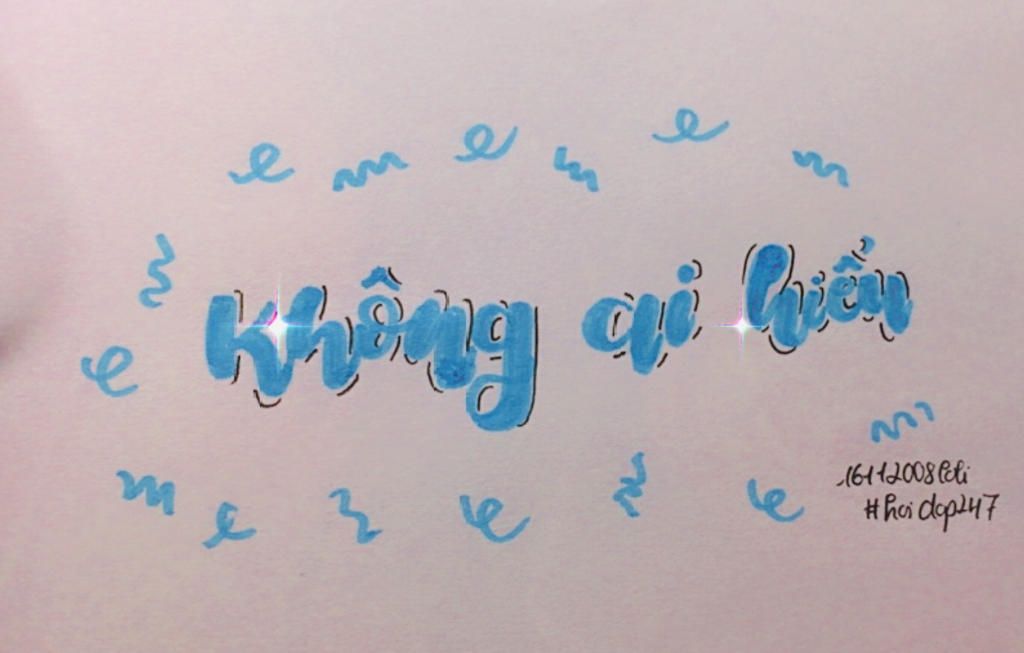 không ai hiểu
16112008lili
#hoidap247